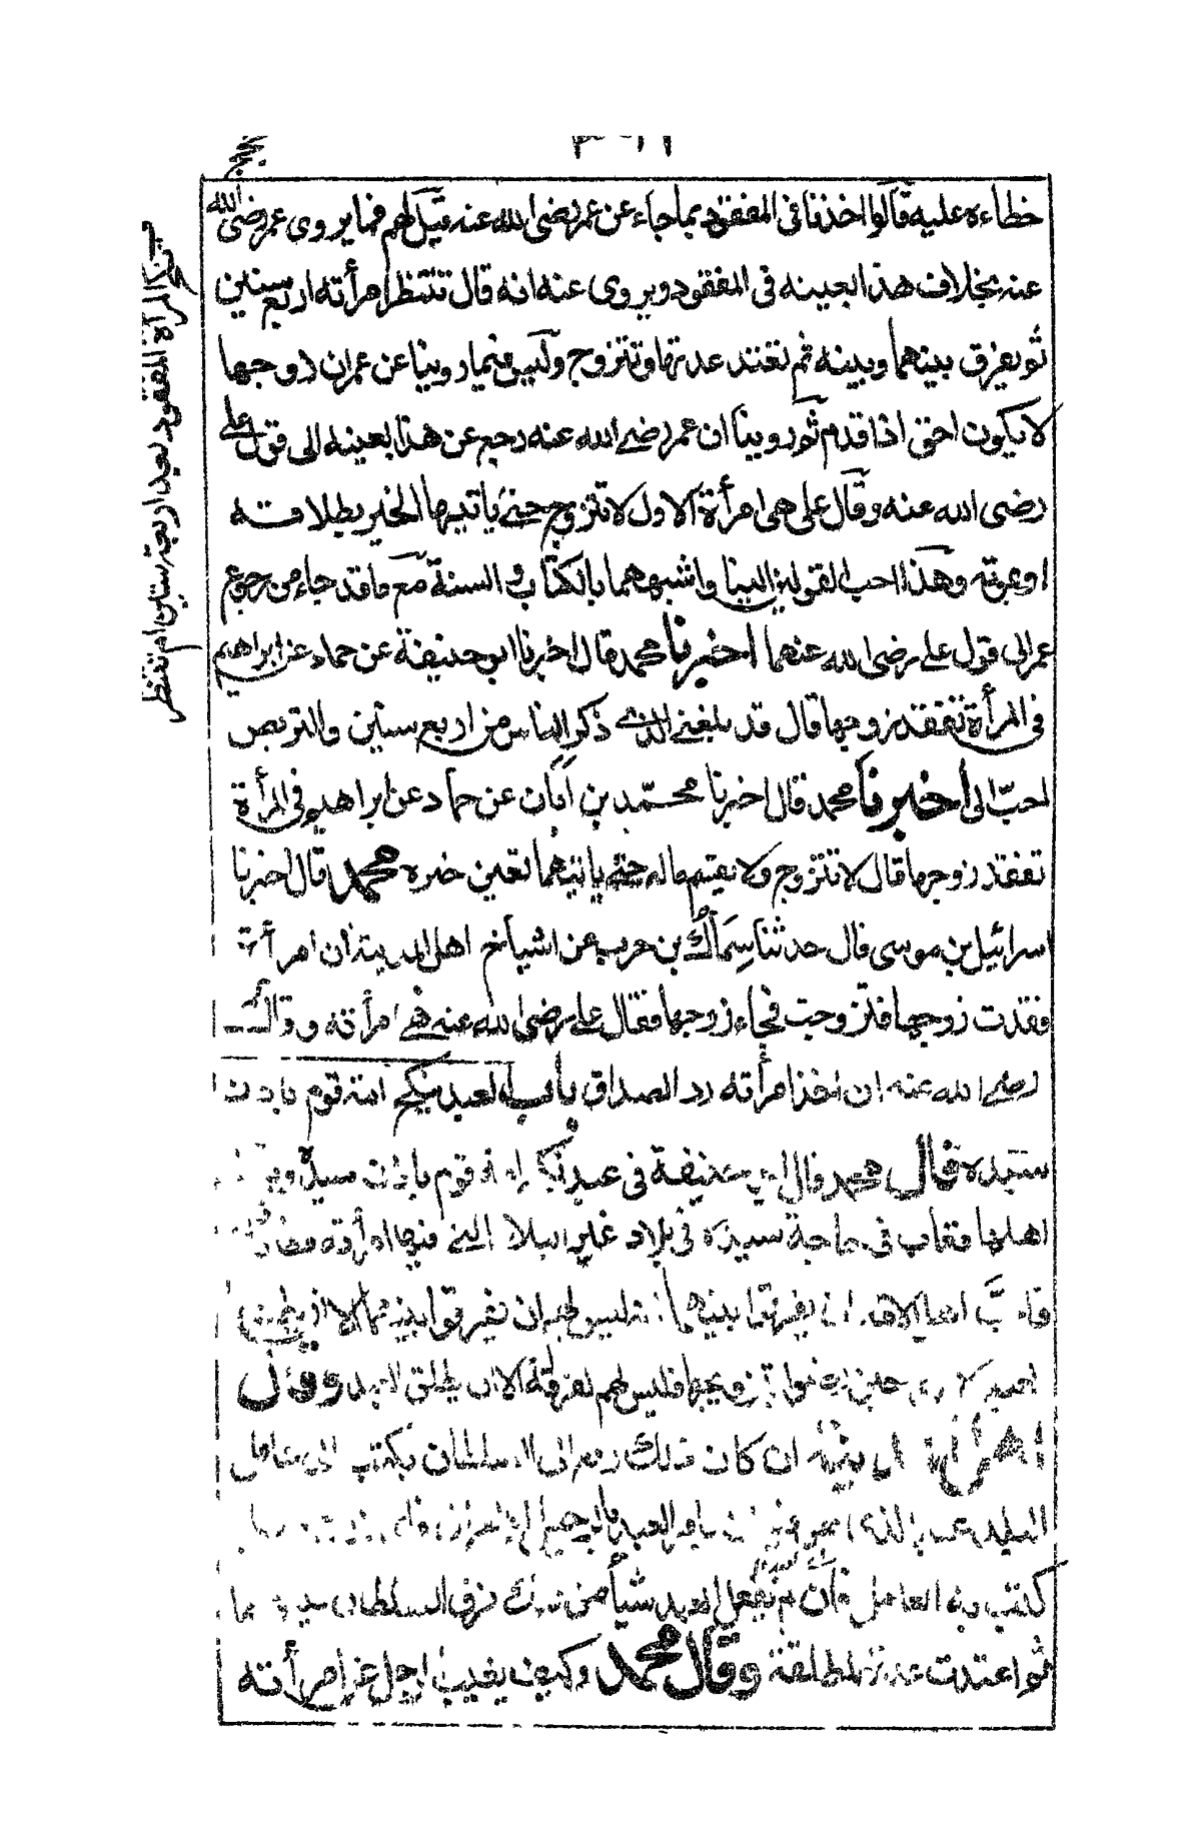 حجج
خطاءه عليه قالوا اخذنا فى المفقود بما جاء عن عمر رضى الله عنه قيل لهم فما يروى عمر رضى الله
عنه بخلاف هذا بعينه فى المفقود ويروى عنه انه قال تنتظر امرأته اربع سنين
ثم يفرق بينهما وبينه ثم تعتد عدتها وتتزوج وليس فيما روينا عن عمر ان زوجها
لا يكون احق اذا قدم ثم روينا ان عمر رضى الله عنه رجع عن هذا بعينه الى قول على
رضى الله عنه وقال على هى امرأة الاول لا تتزوج حتى ياتيها الخبر بطلاقه
او موته وهذا احب القولين الينا واشبههما بالكتاب والسنة مع ما قد جاء من رجوع
عمر الى قول على رضى الله عنهما اخبرنا محمد قال اخبرنا ابو حنيفة عن حماد عن ابراهيم
فى المرأة تفقد زوجها قال قد بلغنى الذى ذكر الناس من اربع سنين والتربص
احب الى اخبرنا محمد قال اخبرنا محمد بن ابان عن حماد عن ابراهيم فى المرأة
تفقد زوجها قال لا تتزوج ولا يقسم ماله حتى ياتيهما يقين خبره محمد قال اخبرنا
اسرائيل بن موسى قال حدثنا سماك بن حرب عن اشياخ اهل المدينة ان امرأة
فقدت زوجها فتزوجت فجاء زوجها فقال على رضى الله عنه هى امرأته وقال
رضى الله عنه ان اخذ امرأته رد الصداق باب العبد ينكح ابنة قوم باذن
سيده قال محمد قال ابو حنيفة فى عبد نكح ابنة قوم باذن سيده
اهلها فغاب فى حاجة سيده فى بلاد غير البلاد التى فيها امرأته
ان يفرقوا بينهما ليس لهم ان يفرقوا بينهما الا
حين زوجها فليس لهم تفرقة الا ان يطلق العبد وقال
اهل المدينة ان كان ذلك رفع الى السلطان فكتب الى عامل
البلد الذى
كتب به العامل فان لم يفعل العبد شيأ من ذلك فرق السلطان بينهما
ثم اعتدت عدة المطلقة وقال محمد وكيف يغيب الرجل عن امرأته
المرأة المفقود بعد اربعة سنين ام تنتظر